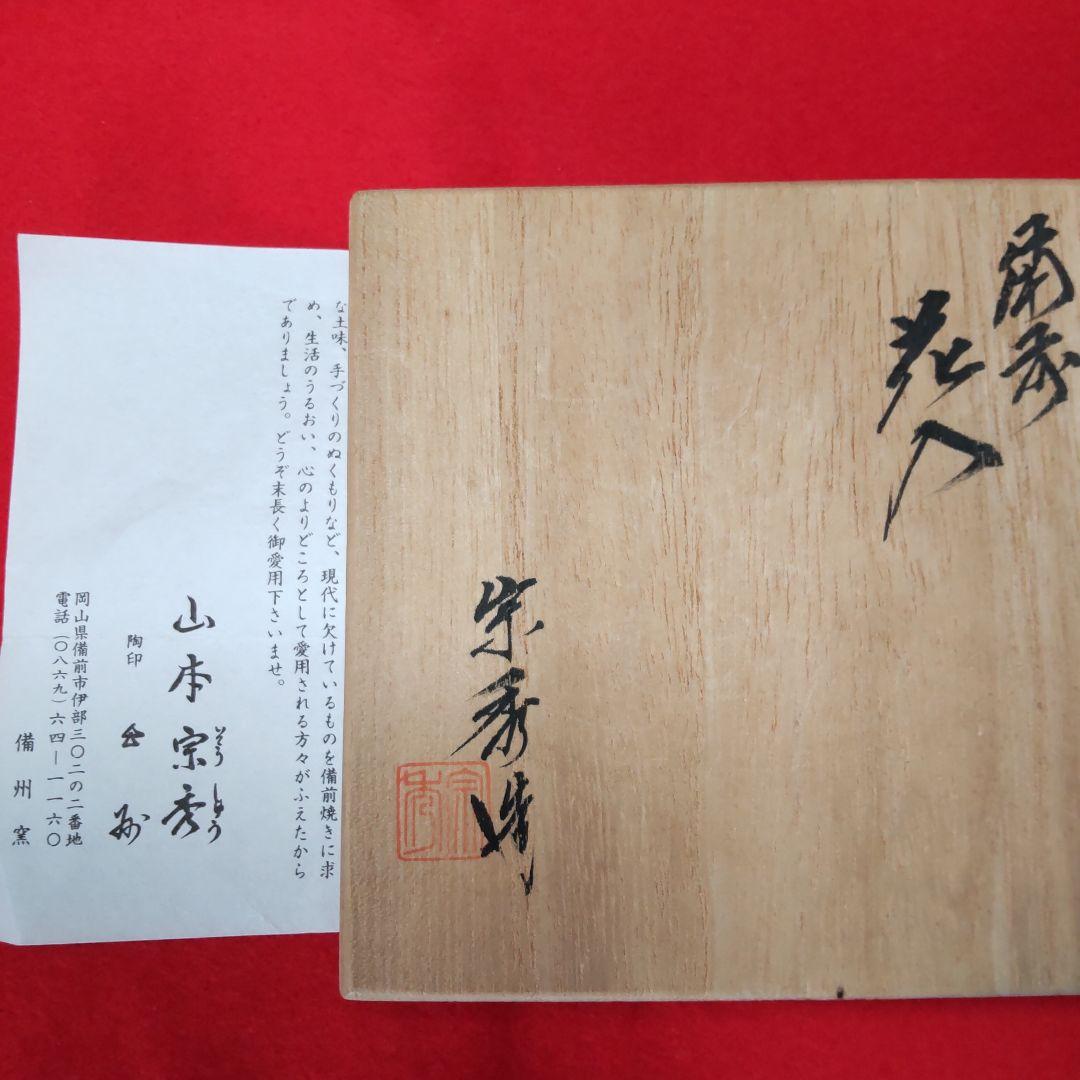 備前
花入
宗秀造
な土味、手づくりのぬくもりなど、現代に欠けているものを備前焼きに求
め、生活のうるおい、心のよりどころとして愛用される方々がふえたから
でありましょう。どうぞ末長く御愛用下さいませ。
山本宗秀
そうしゅう
陶印
岡山県備前市伊部三〇二の二番地
電話(〇八六九)六四―一一六〇
備州窯